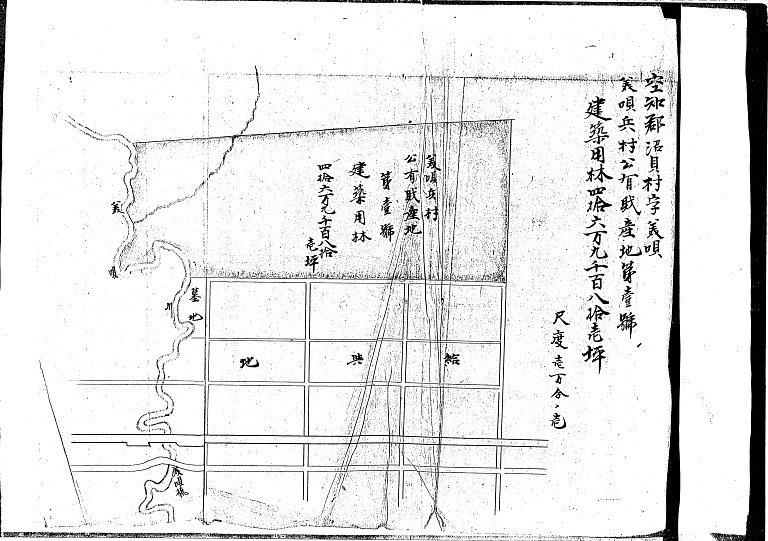 空知郡沼貝村字美唄
美唄兵村公有財産地第壹號
建築用林四拾六万九千百八拾壱坪
尺度壱万分ノ壱
美唄兵村
公有財産地
第壹號
建築用林
四拾六万九千百八拾
壱坪
美唄川
墓地
給與地
美唄橋